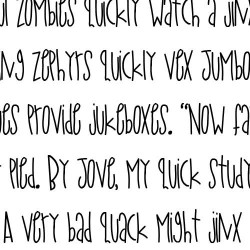 zombies quickly watch a jinx
ng zephyrs quickly vex jumbo
es provide jukeboxes. “Now fa
pled. By Jove, my quick study
A very bad quack might jinx